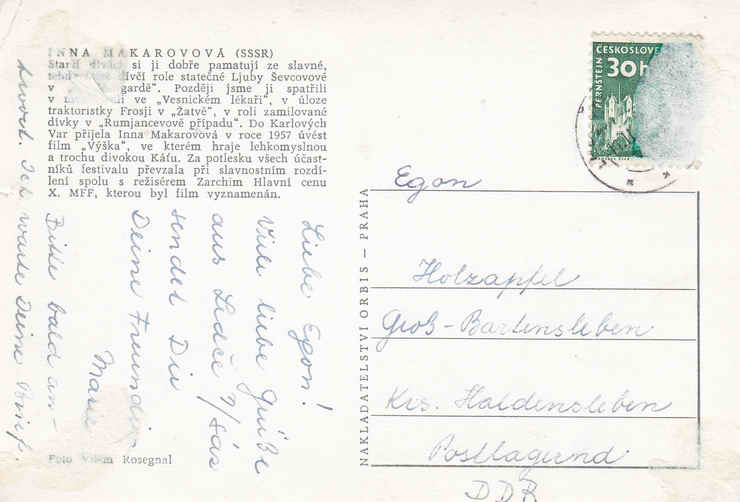 INNA MAKAROVOVÁ (SSSR)
Starší diváci si ji dobře pamatují ze slavné,
dívčí role statečné Ljuby Ševcovové
v gardě". Později jsme ji spatřili
v ve „Vesnickém lékaři", v úloze
traktoristky Frosji v „Žatvě", v roli zamilované
dívky v „Rumjancevově případu". Do Karlových
Var přijela Inna Makarovová v roce 1957 uvést
film „Výška", ve kterém hraje lehkomyslnou
a trochu divokou Káťu. Za potlesku všech účast-
níků festivalu převzala při slavnostním rozdí-
lení spolu s režisérem Zarchim Hlavní cenu
X. MFF, kterou byl film vyznamenán.
Liebe Egon!
Viele liebe Grüße
aus Ledče n/Sáz
sendet Dir
Deine Freundin
Marie
Bitte bald an-
twort. Ich warte Deine Brief.
Foto Vilém Rosegnal
NAKLADATELSTVÍ ORBIS — PRAHA
ČESKOSLOVE
30 h
PERNŠTEJN
Egon
Holzapfel
Groß-Bartensleben
Krs. Haldensleben
Postlagernd
DDR